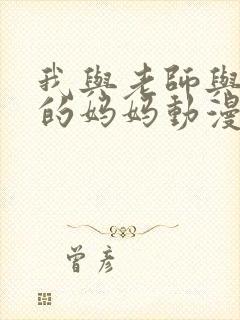 我與老師與
的媽媽動漫
曾彥